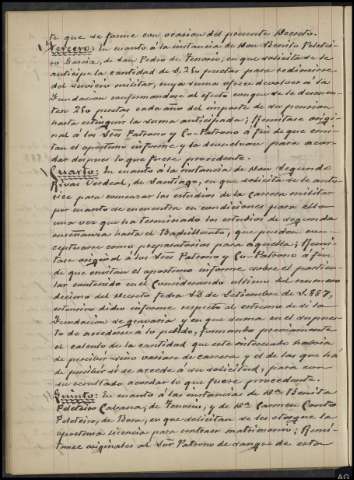 te que se forme con ocasion del presente Decreto.
Tercero: En cuanto á la instancia de Don Benito Peletei-
ro Garcia, de San Pedro de Tenorio, en que solicita se le
anticipe la cantidad de pesetas para redimirse
del servicio militar, cuya suma ofrece devolver á la
Fundacion conformandose al efecto con que se le descuen-
ten 250 pesetas cada año del importe de su pension
hasta extinguir la suma anticipada; Remitase origi-
nal á los Sres Patrono y Co-Patrono á fin de que emi-
tan el oportuno informe y la devuelvan para acor-
dar despues lo que fuere procedente.
Cuarto: En cuanto á la instancia de Don Segundo
Rivas de Santiago, en que solicita se le auto-
rice para comenzar los estudios de la Carrera militar
por cuanto se encuentra en condiciones para ello
una vez que ha terminado los estudios de segunda
enseñanza hasta el Bachillerato, que pueden con-
ceptuarse como preparatorios para aquella; Remi-
tase original á los Sres Patrono y Co-Patrono á fin
de que emitan el oportuno informe sobre el particu-
lar contenido en el Considerando ultimo del numero
decimo del Decreto fecha 28 de Setiembre de
extensivo dicho informe respecto al extremo de si la
Fundacion se gravaria y en que suma en el supues-
to de accederse á lo pedido, formando previamente
el calculo de la cantidad que este interesado habria
de percibir sin variar de carrera y el de las que há
de percibir si se accede á su solicitud, para con
su resultado acordar lo que fuere procedente.
Quinto: En cuanto á las instancias de Dª Benita
Peleteiro de Tenorio, y de Dª Carmen
Peleteiro, de Bora, en que solicitan se les otorgue la
oportuna licencia para contraer matrimonio; Remi-
tanse originales al Sor Patrono de sangre de esta